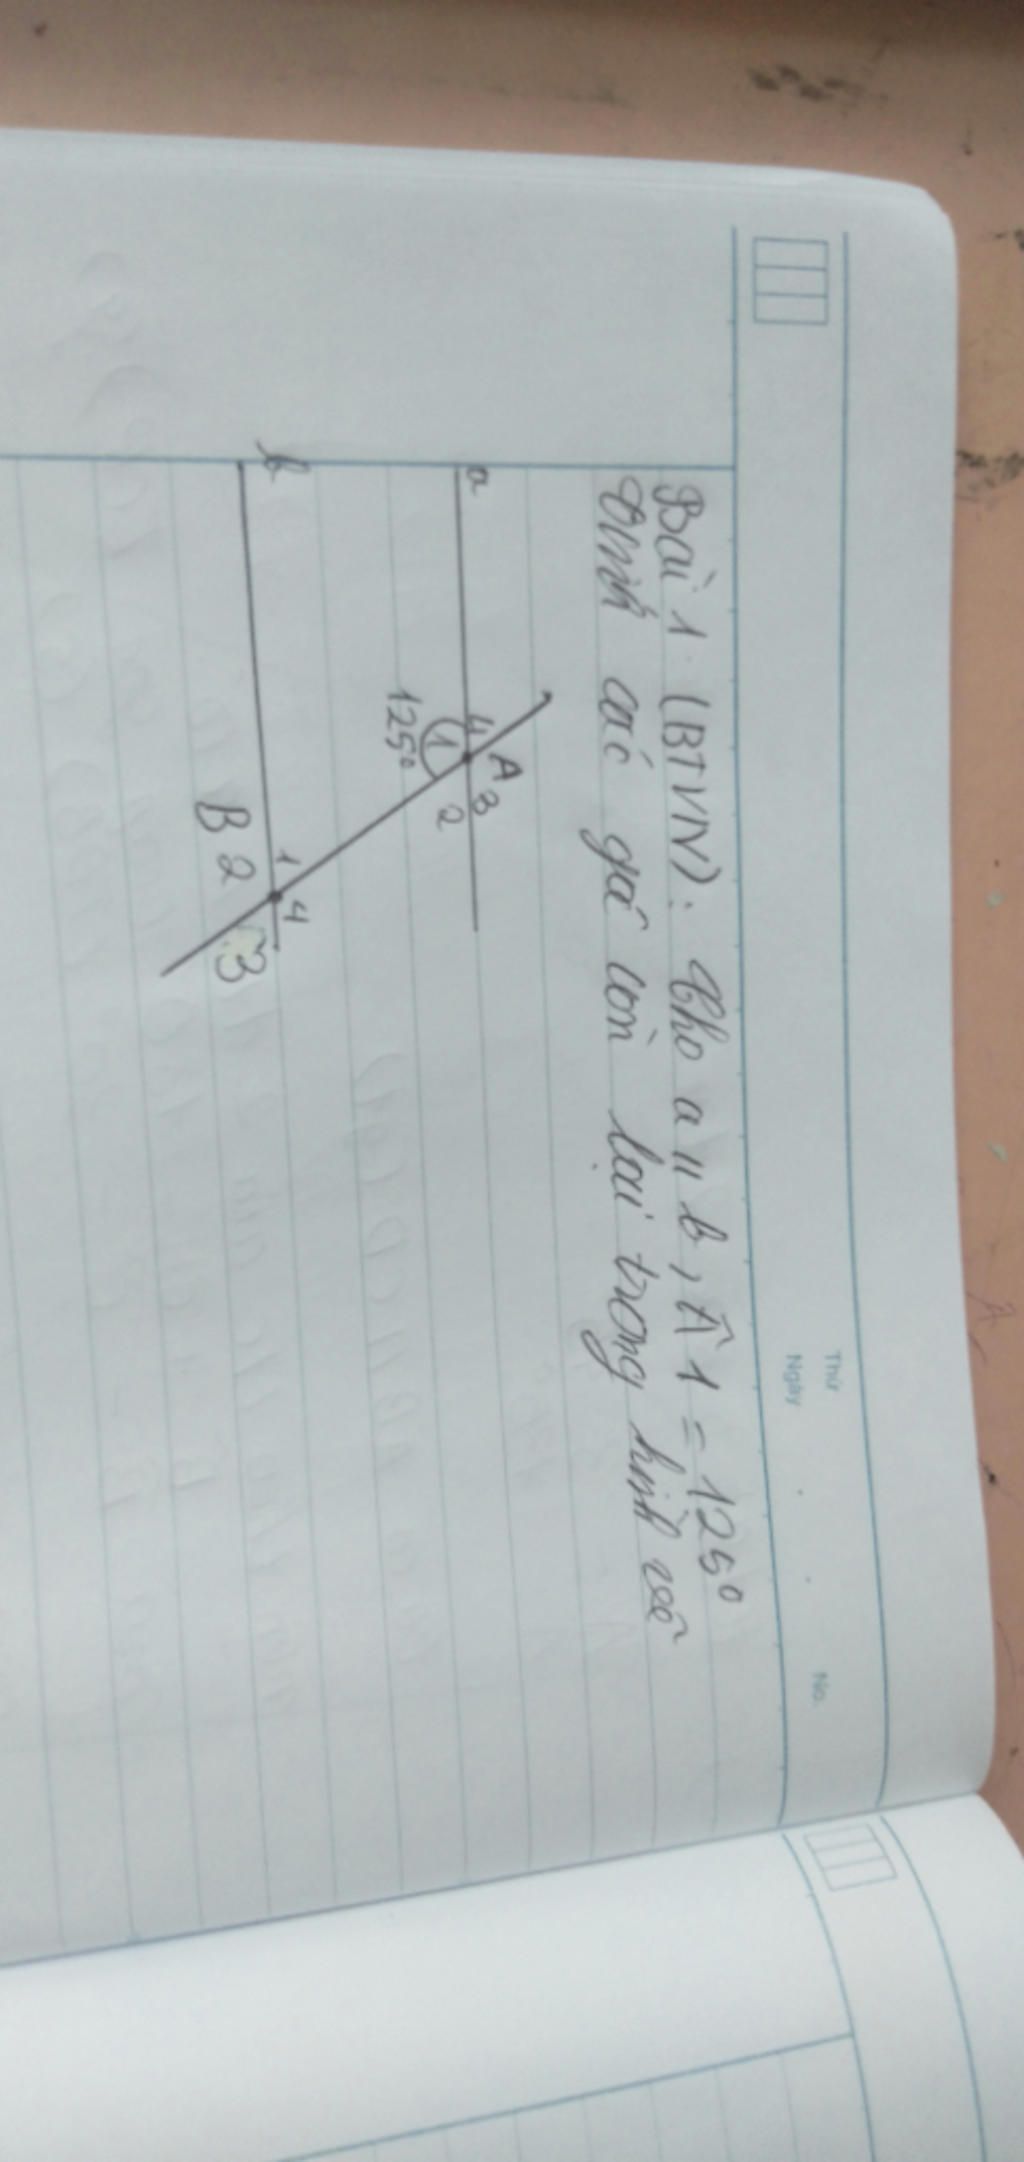 Thứ
Ngày
No.
Bài 1 (BTVN): Cho a // b, Â1 = 125°
tính các gó còn lại trong hình vẽ
a
4
A
3
1
2
125°
b
1
4
B
2
3